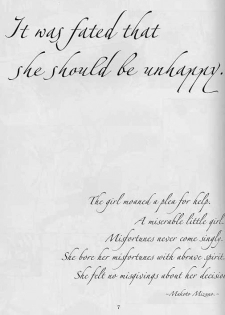 It was fated that
she should be unhappy.
The girl moaned a plea for help.
A miserable little girl.
Misfortunes never come singly.
She bore her misfortunes with abrave spirit.
She felt no misgivings about her decision
-Makoto Mizuno-
7